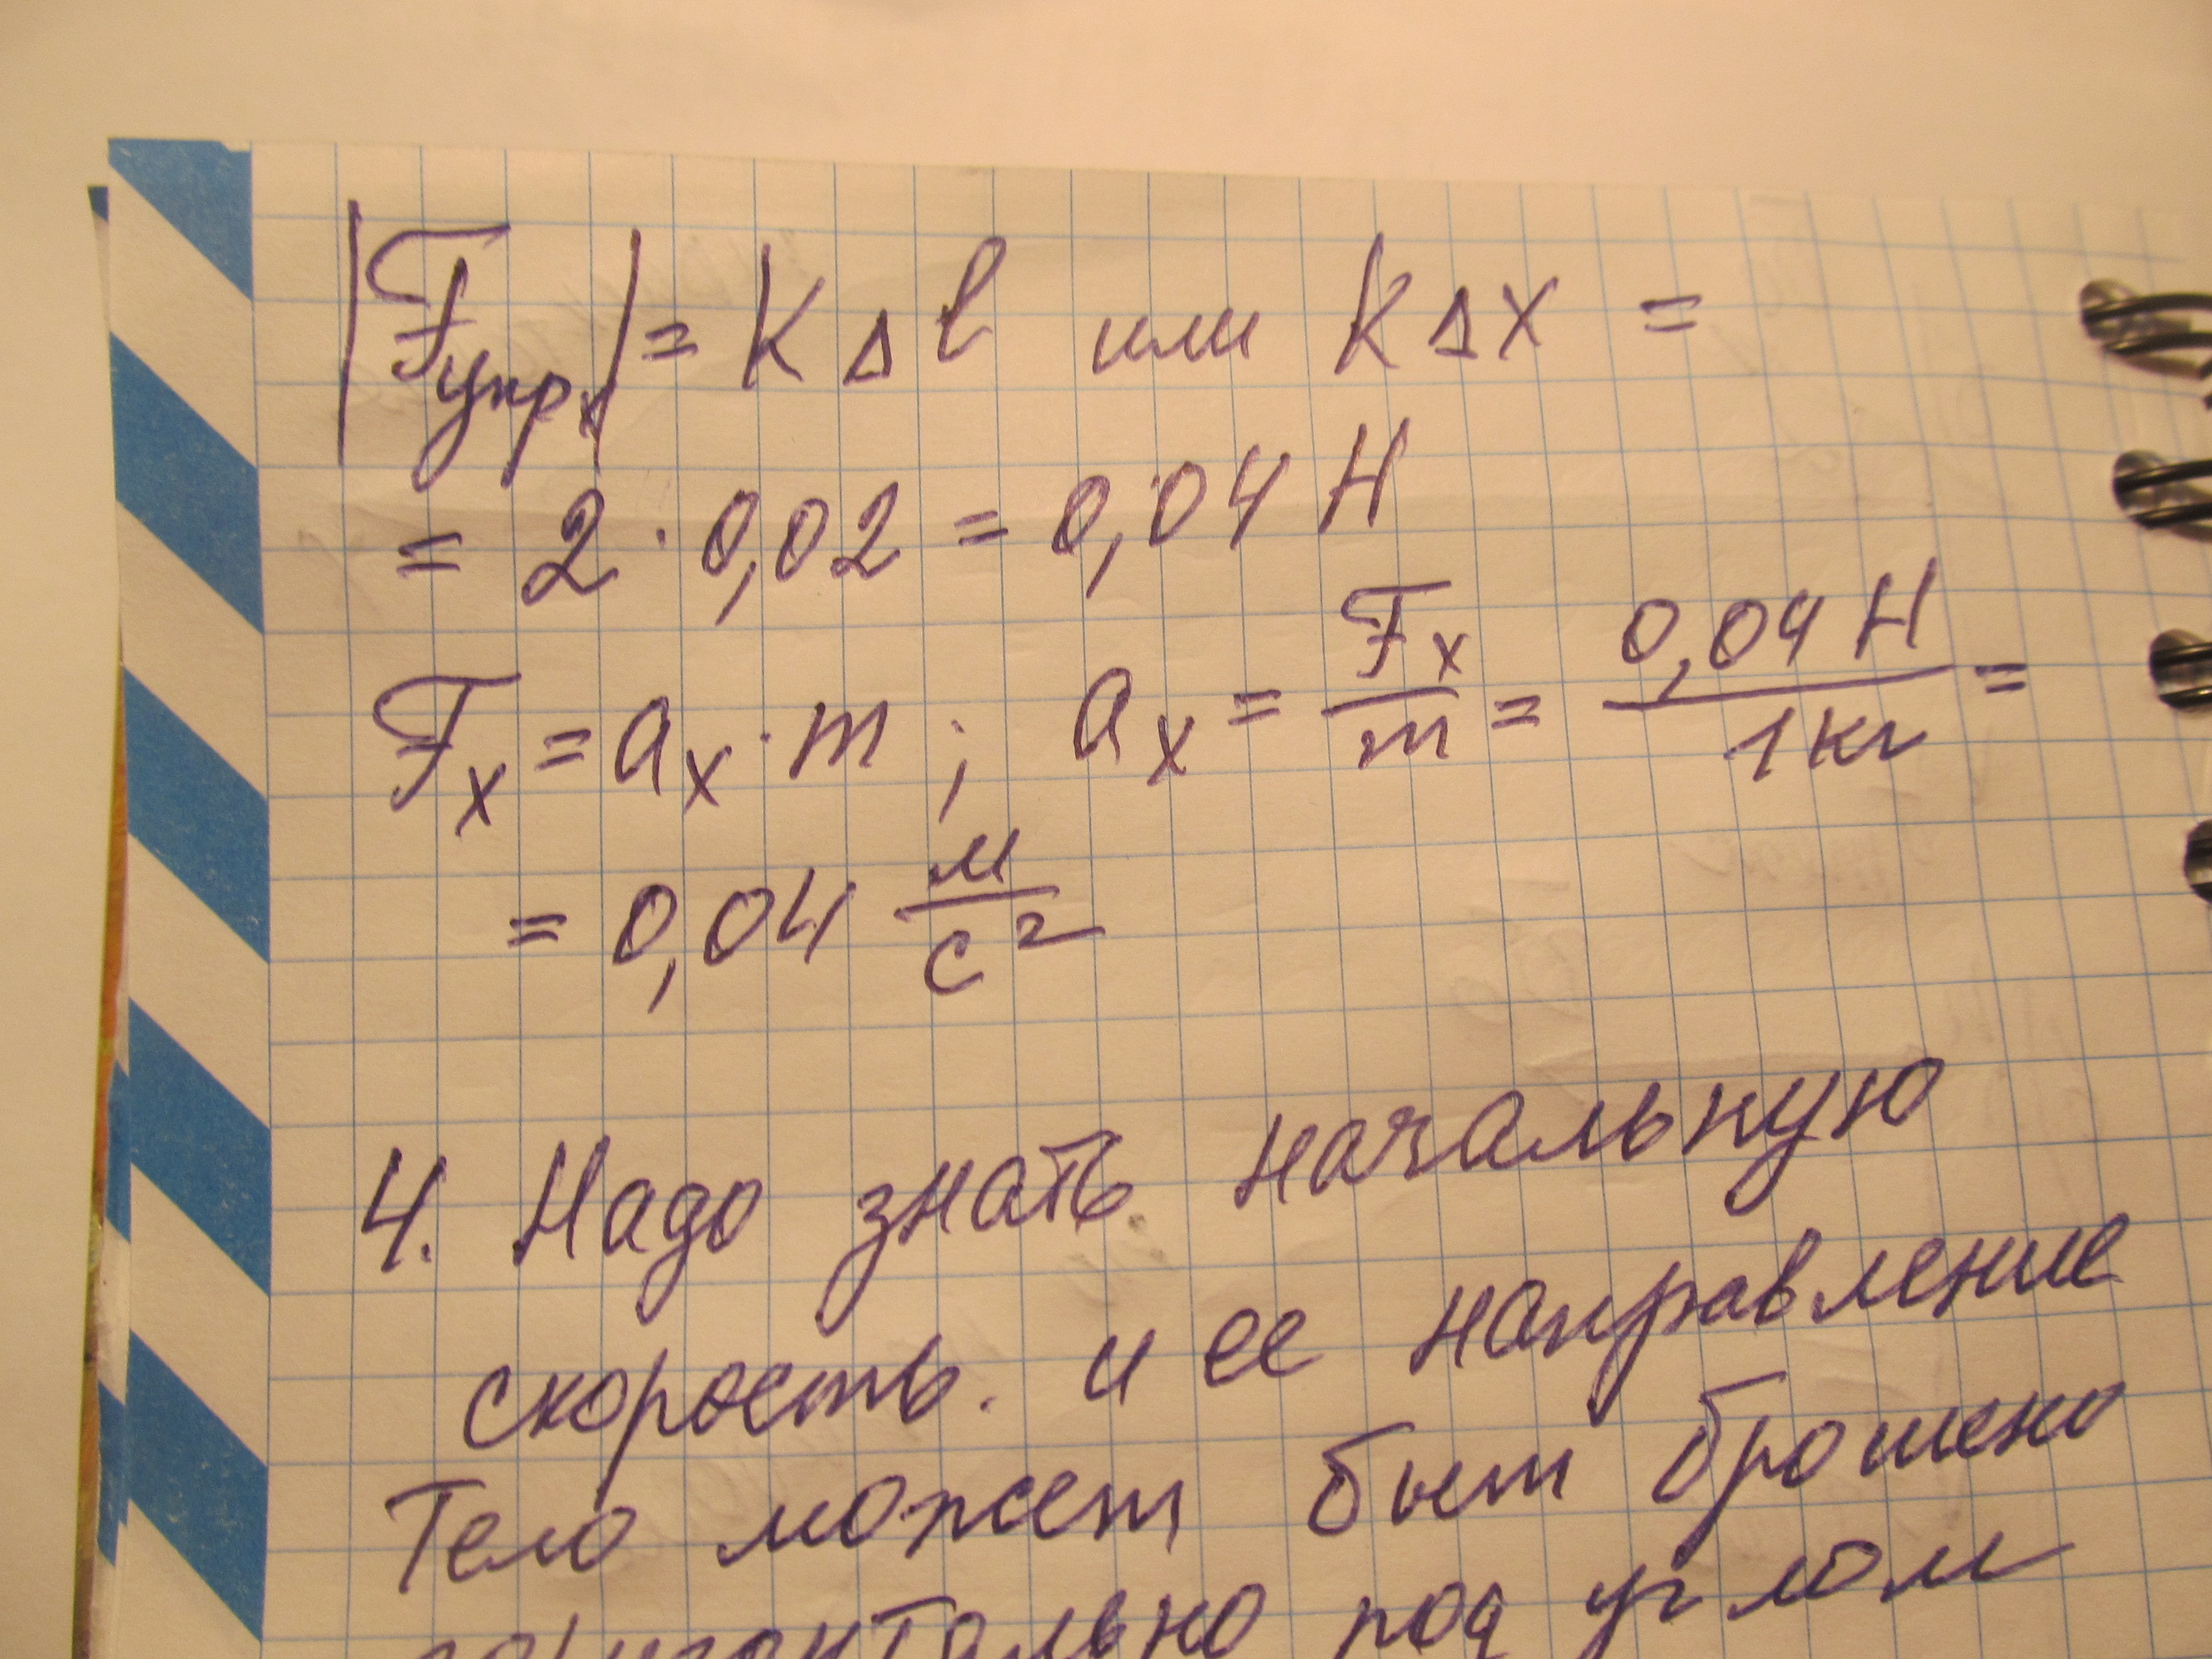 |Fупрx| = kΔl или kΔx =
= 2 · 0,02 = 0,04 Н
Fx = ax · m ; ax = Fx/m = 0,04 Н/1 кг =
= 0,04 м/с²
4. Надо знать начальную
скорость. и ее направление
Тело может быт брошено
горизонтально под углом